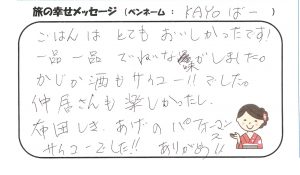 旅の幸せメッセージ （ペンネーム ： KAYOばー ）
ごはんは とても おいしかったです!
一品一品 ていねいな 味がしました。
かじか酒もサイコー!!でした。
仲居さんも楽しかったし、
布団しき、あげのパフォーマンス
サイコーでした!! ありがとう!!